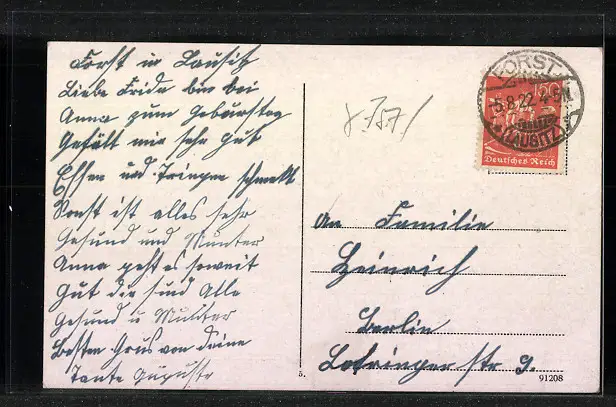 Forst in Lausitz
Liebe Frida bin bei
Anna zum Gebürsteg
Gefält mir sehr gut
Essen und Tringen schmekt
Sonst ist alles sehr
Gesund und Munter
Anna geht es soweit
Gut die sind Alle
Gesund u Munter
Besten Grus von deine
Tante Auguste
FORST
5.8.22
(LAUSITZ)
120
Deutsches Reich
An Familie
Heinrich
Berlin
Lotringer str 9.
5.
91208